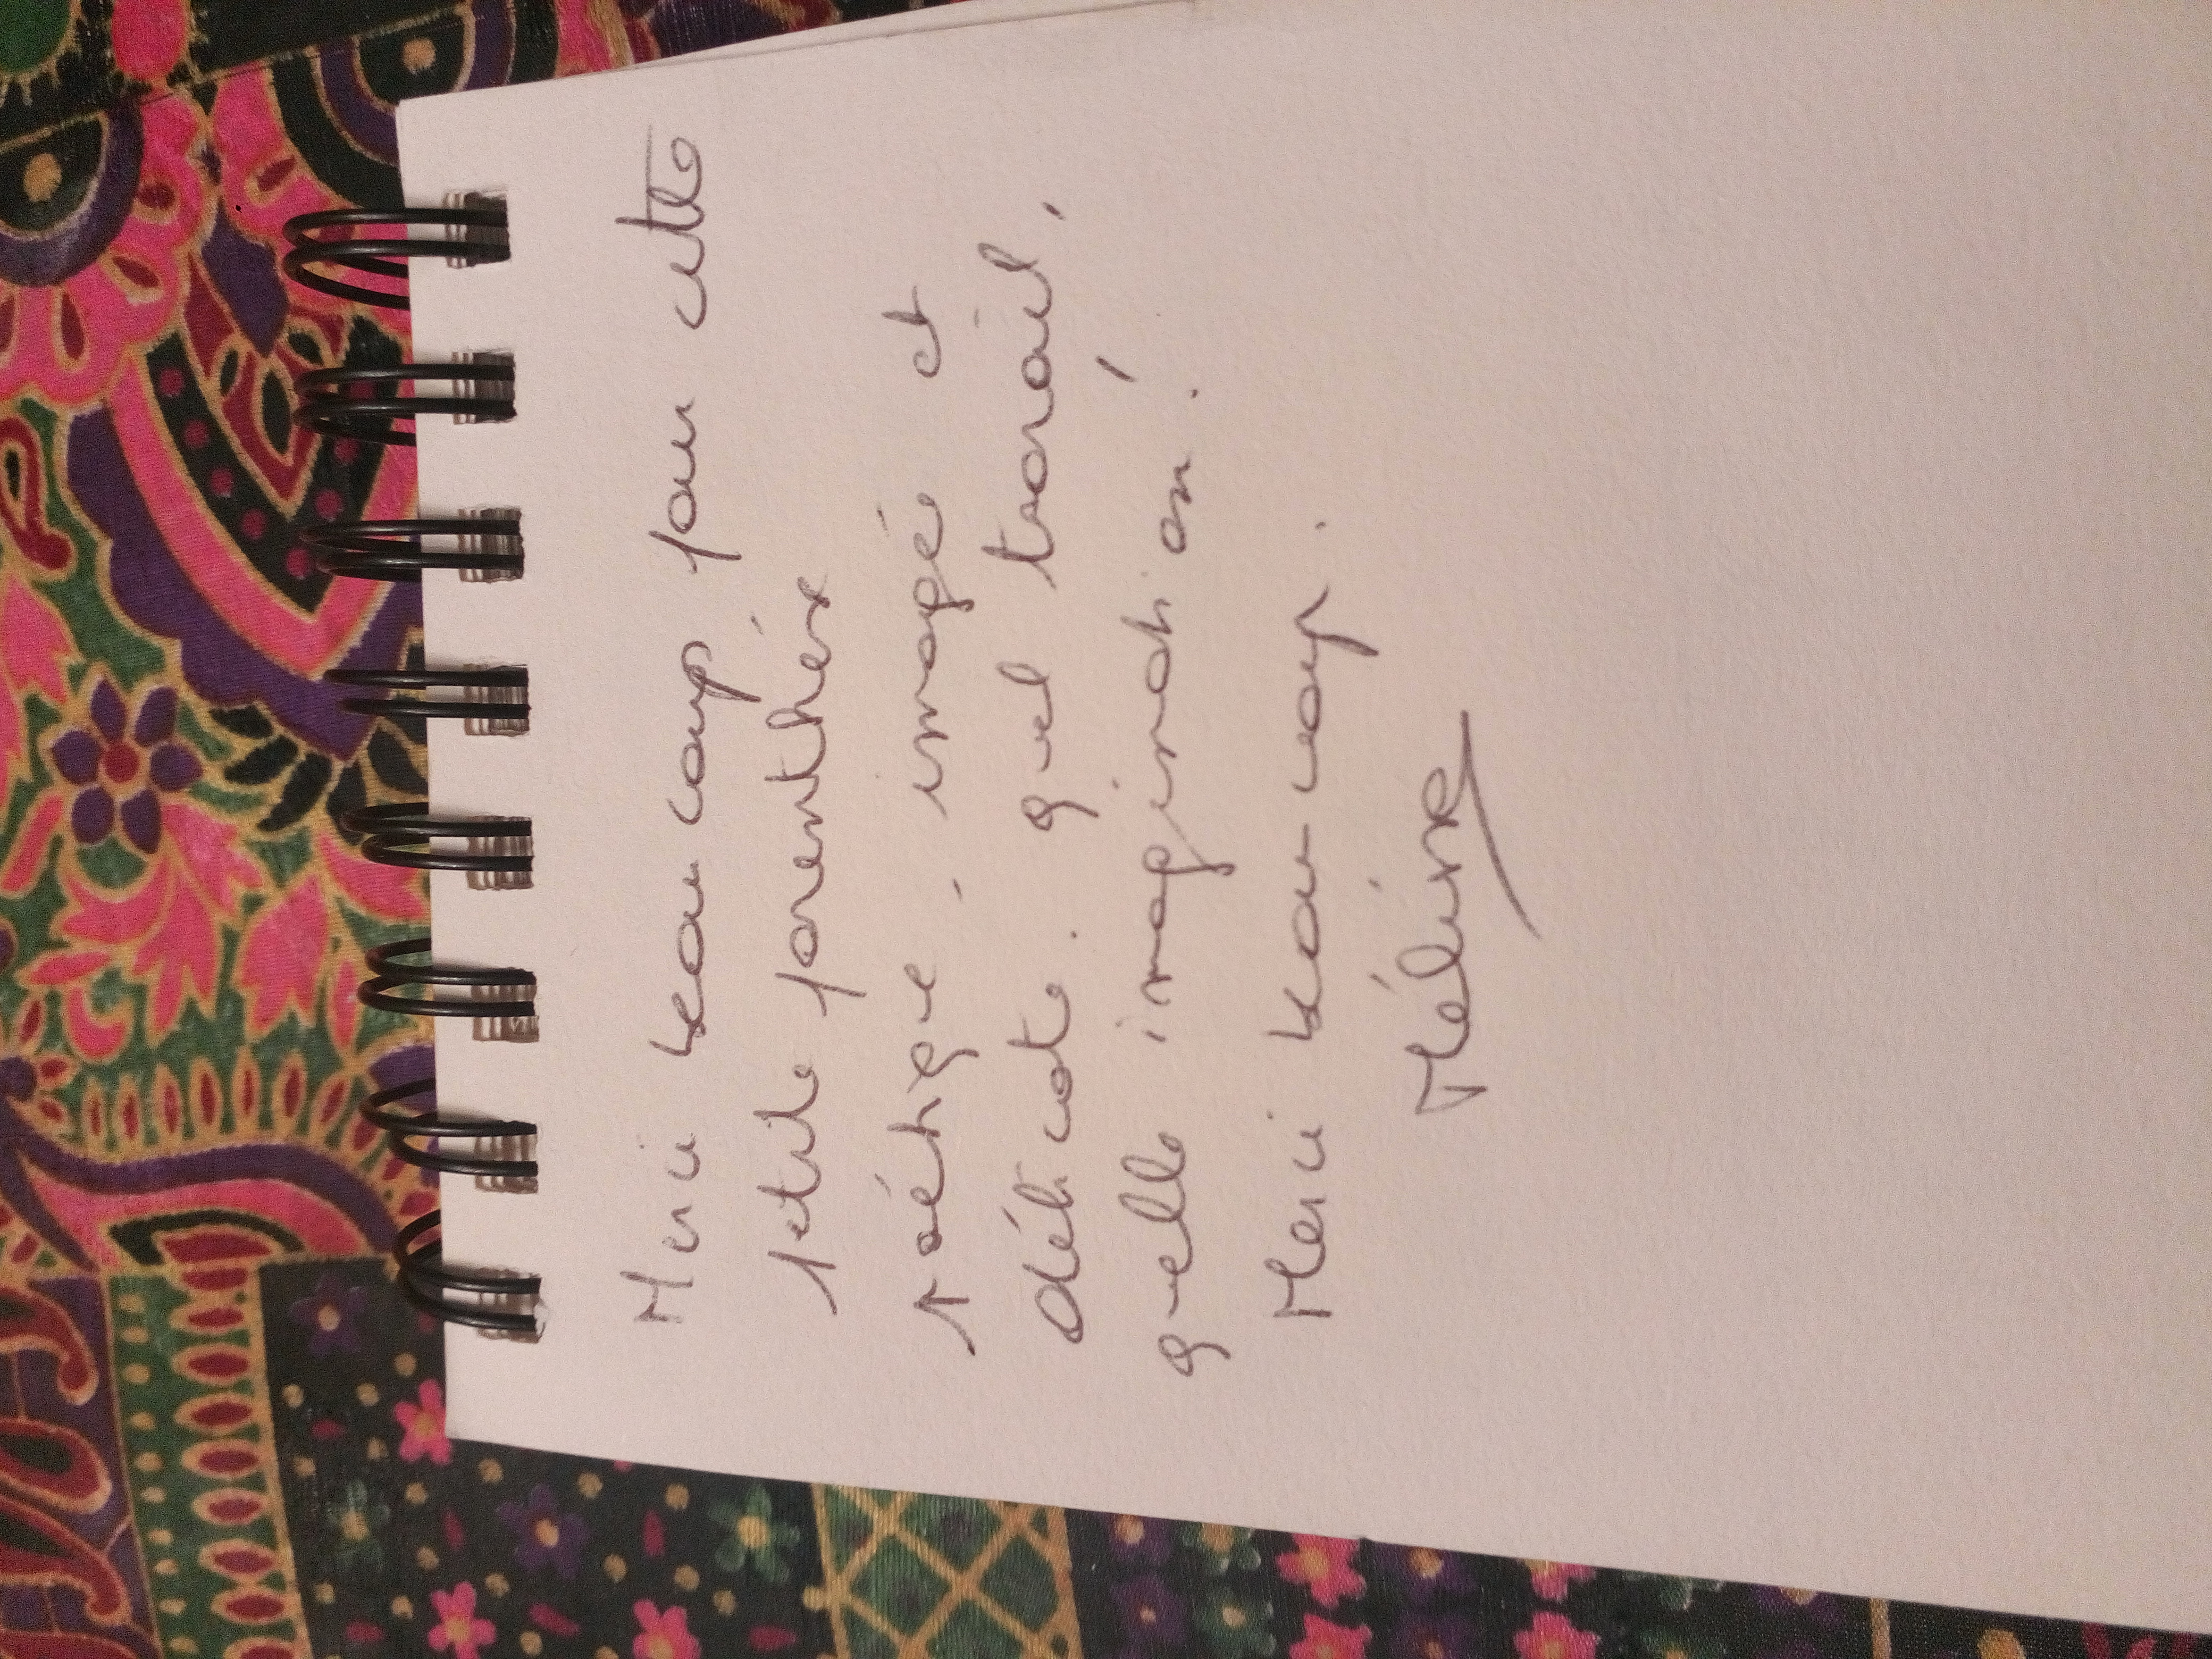 Merci beaucoup pour cette
petite parenthèse
poétique, imagée et
délicate. Quel travail,
quelle imagination !
Merci beaucoup.
Méline